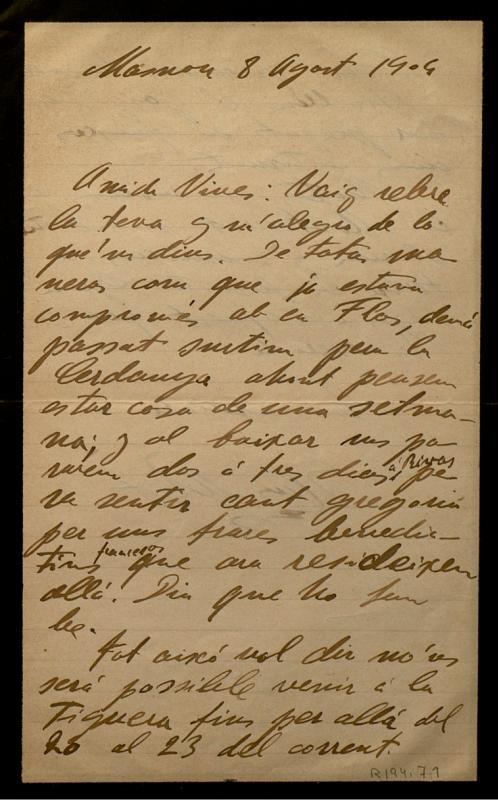 Masnou 8 Agost 1904
Amich Vives: Vaig rebre
la teva y m'alegro de lo
que'm dius. De totas ma
neras com que ja estava
compromés ab en Flos, demá
passat surtim pera la
Cerdanya ahont pensem
estar cosa de una setma-
na; y al baixar nos pa
rarém dos ó tres dias á Rivas pe
ra sentir cant gregoriá
per uns frares benedic-
tins francesos que ara resideixen
allá. Diu que ho fan
be.
Tot aixó vol dir no'ns
será possible venir á la
Figuera fins per allá del
20 al 23 del corrent.
R194.71